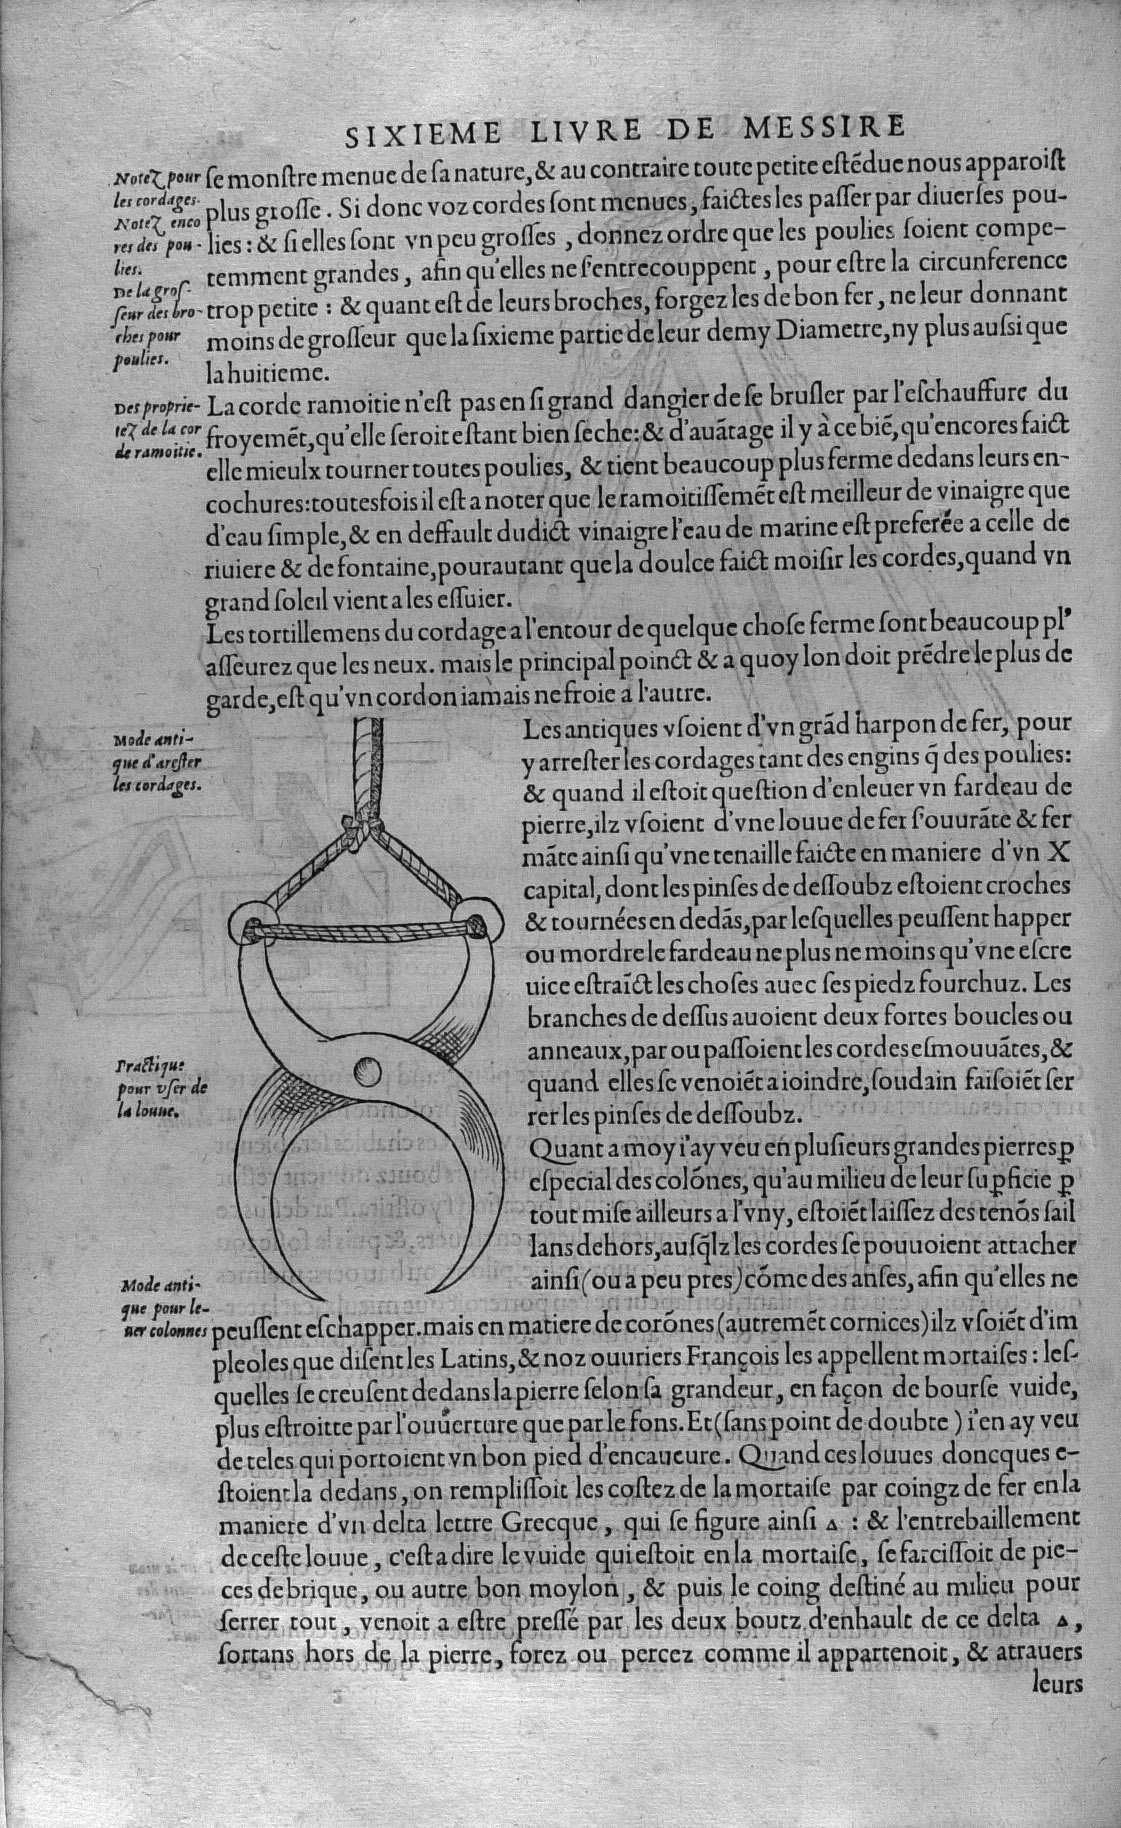 SIXIEME LIVRE DE MESSIRE
Noteƶ pour
les cordages.
Noteƶ enco
res des pou-
lies.
De la gros-
ſeur des bro-
ches pour
poulies.
ſe monſtre menue de ſa nature, & au contraire toute petite eſtẽdue nous apparoiſt
plus groſſe. Si donc voz cordes ſont menues, faictes les paſſer par diuerſes pou-
lies: & ſi elles ſont vn peu groſſes, donnez ordre que les poulies ſoient compe-
temment grandes, afin qu'elles ne ſ'entrecouppent, pour eſtre la circunference
trop petite: & quant eſt de leurs broches, forgez les de bon fer, ne leur donnant
moins de groſſeur que la ſixieme partie de leur demy Diametre, ny plus auſsi que
la huitieme.
Des proprie-
teƶ de la cor
de ramoitie.
La corde ramoitie n'eſt pas en ſi grand dangier de ſe bruſler par l'eſchauffure du
froyemẽt, qu'elle ſeroit eſtant bien ſeche: & d'auãtage il y à ce biẽ, qu'encores faict
elle mieulx tourner toutes poulies, & tient beaucoup plus ferme dedans leurs en-
cochures: toutesfois il eſt a noter que le ramoitiſſemẽt eſt meilleur de vinaigre que
d'eau ſimple, & en deffault dudict vinaigre l'eau de marine eſt preferée a celle de
riuiere & de fontaine, pourautant que la doulce faict moiſir les cordes, quand vn
grand ſoleil vient a les eſſuier.
Les tortillemens du cordage a l'entour de quelque choſe ferme ſont beaucoup pl'
aſſeurez que les neux. mais le principal poinct & a quoy lon doit prẽdre le plus de
garde, eſt qu'vn cordon iamais ne froie a l'autre.
Mode anti-
que d'areſter
les cordages.
Les antiques vſoient d'vn grãd harpon de fer, pour
y arreſter les cordages tant des engins q̃ des poulies:
& quand il eſtoit queſtion d'enleuer vn fardeau de
pierre, ilz vſoient d'vne louue de fer ſ'ouurãte & fer
mãte ainſi qu'vne tenaille faicte en maniere d'vn X
capital, dont les pinſes de deſſoubz eſtoient croches
& tournées en dedãs, par leſquelles peuſſent happer
ou mordre le fardeau ne plus ne moins qu'vne eſcre
uice eſtraĩct les choſes auec ſes piedz fourchuz. Les
branches de deſſus auoient deux fortes boucles ou
anneaux, par ou paſſoient les cordes eſmouuãtes, &
quand elles ſe venoiẽt a ioindre, ſoudain faiſoiẽt ſer
rer les pinſes de deſſoubz.
Practique
pour vſer de
la louue.
Quant a moy i'ay veu en pluſieurs grandes pierres ꝑ
eſpecial des colõnes, qu'au milieu de leur ſuꝑficie ꝑ
tout miſe ailleurs a l'vny, eſtoiẽt laiſſez des tenõs ſail
lans dehors, auſq̃lz les cordes ſe pouuoient attacher
ainſi (ou a peu pres) cõme des anſes, afin qu'elles ne
Mode anti-
que pour le-
uer colonnes
peuſſent eſchapper. mais en matiere de corõnes (autremẽt cornices) ilz vſoiẽt d'im
pleoles que diſent les Latins, & noz ouuriers François les appellent mortaiſes: leſ-
quelles ſe creuſent dedans la pierre ſelon ſa grandeur, en façon de bourſe vuide,
plus eſtroitte par l'ouuerture que par le fons. Et (ſans point de doubte) i'en ay veu
de teles qui portoient vn bon pied d'encaueure. Quand ces louues doncques e-
ſtoient la dedans, on rempliſſoit les coſtez de la mortaiſe par coingz de fer en la
maniere d'vn delta lettre Grecque, qui ſe figure ainſi Δ: & l'entrebaillement
de ceſte louue, c'eſt a dire le vuide qui eſtoit en la mortaiſe, ſe farciſſoit de pie-
ces de brique, ou autre bon moylon, & puis le coing deſtiné au milieu pour
ſerrer tout, venoit a eſtre preſſé par les deux boutz d'enhault de ce delta Δ,
ſortans hors de la pierre, forez ou percez comme il appartenoit, & atrauers
leurs